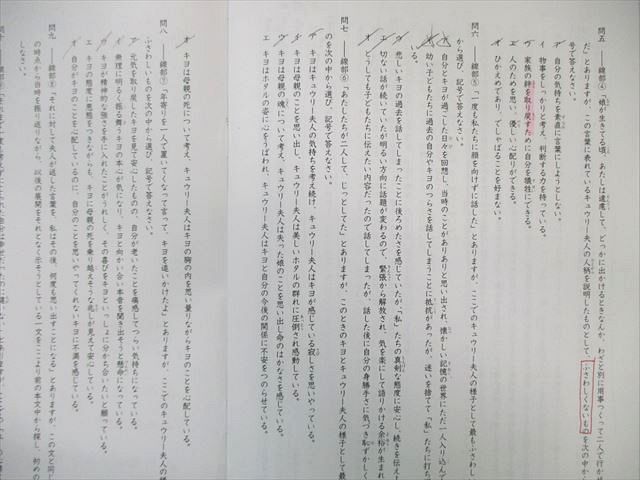 問五 ――線部④「娘が生きてる頃、あたしは遠慮して、どっかに出かけるときなんか、わざと別に用事つくって二人で行か
だ」とありますが、この言葉に表れているキュウリー夫人の人柄を説明したものとして、ふさわしくないものを次の中か
号で答えなさい。
ア 自分の気持ちを素直に言葉にしようとしない。
イ 物事をしっかりと考え、判断する力を持っている。
ウ 家族の絆を取り戻すために自分を犠牲にできる。
エ 人のためを思い、優しい心配りができる。
オ ひかえめであり、でしゃばることを好まない。
問六 ――線部⑤「一度も私たちに顔を向けずに話した」とありますが、ここでのキュウリー夫人の様子として最もふさわし
から選び、記号で答えなさい。
ア 自分とキヨが過ごした日々を回想し、当時のことがありありと思い出され、懐かしい記憶の世界にただ一人入り込んで
イ 幼い子どもたちに過去の自分やキヨのつらさを話してしまうことに抵抗があったが、迷いを捨てて「私」たちに打ち
いる。
ウ 悲しいキヨの過去を話してしまったことに後ろめたさを感じていたが「私」たちの真剣な態度に安心し、続きを伝え
エ 切ない話が続いていたが明るい方向に話題が変わるので、緊張から解放され、気を楽にして語りかける余裕が生まれ
オ どうしても子どもたちに伝えたい内容だったので話してしまったが、話した後に自分の身勝手さに気づき恥ずかしく
問七 ――線部⑥「あたしたちが二人して、じっとしてた」とありますが、このときのキヨとキュウリー夫人の様子として最
のを次の中から選び、記号で答えなさい。
ア キヨはキュウリー夫人の気持ちを考え続け、キュウリー夫人はキヨが感じている寂しさを思いやっている。
イ キヨは母親のことを思い出し、キュウリー夫人は美しいホタルの群れに圧倒され感動している。
ウ キヨは母親の魂について考え、キュウリー夫人は失った娘のことを思い出し命のはかなさを感じている。
エ キヨはホタルの姿に心をうばわれ、キュウリー夫人はキヨと自分の今後の関係に不安をつのらせている。
オ キヨは母親の死について考え、キュウリー夫人はキヨの胸の内を思い量りながらキヨのことを心配している。
問八 ――線部⑦「年寄りを一人で置いてくなって言って、キヨを追いかけたよ」とありますが、ここでのキュウリー夫人の様
ふさわしいものを次の中から選び、記号で答えなさい。
ア 元気を取り戻したキヨを見て安心したものの、自分が老いたことを痛感してつらい気持ちになっている。
イ 無理に明るく振る舞うキヨの本心が気になり、キヨと向かい合い本音を聞き出そうと懸命になっている。
ウ キヨが精神的な強さを手に入れたことがうれしく、その喜びをキヨといっしょに分かち合いたいと願っている。
エ キヨの態度に悪態をつきながらも、キヨは母親の死を乗り越えそうな兆しが見えて安心している。
オ 自分がキヨのことを心配しているのに、自分のことを思いやってくれないキヨに不満を感じている。
問九 ――線部⑧「それに対して夫人が返した言葉を、私はその後、何度も思い出すことになる」とありますが、この文と同じ
の時点から当時を振り返りながら、以後の展開をそれとなく示そうとしている一文をここより前の本文中から探し、初めの
しなさい。